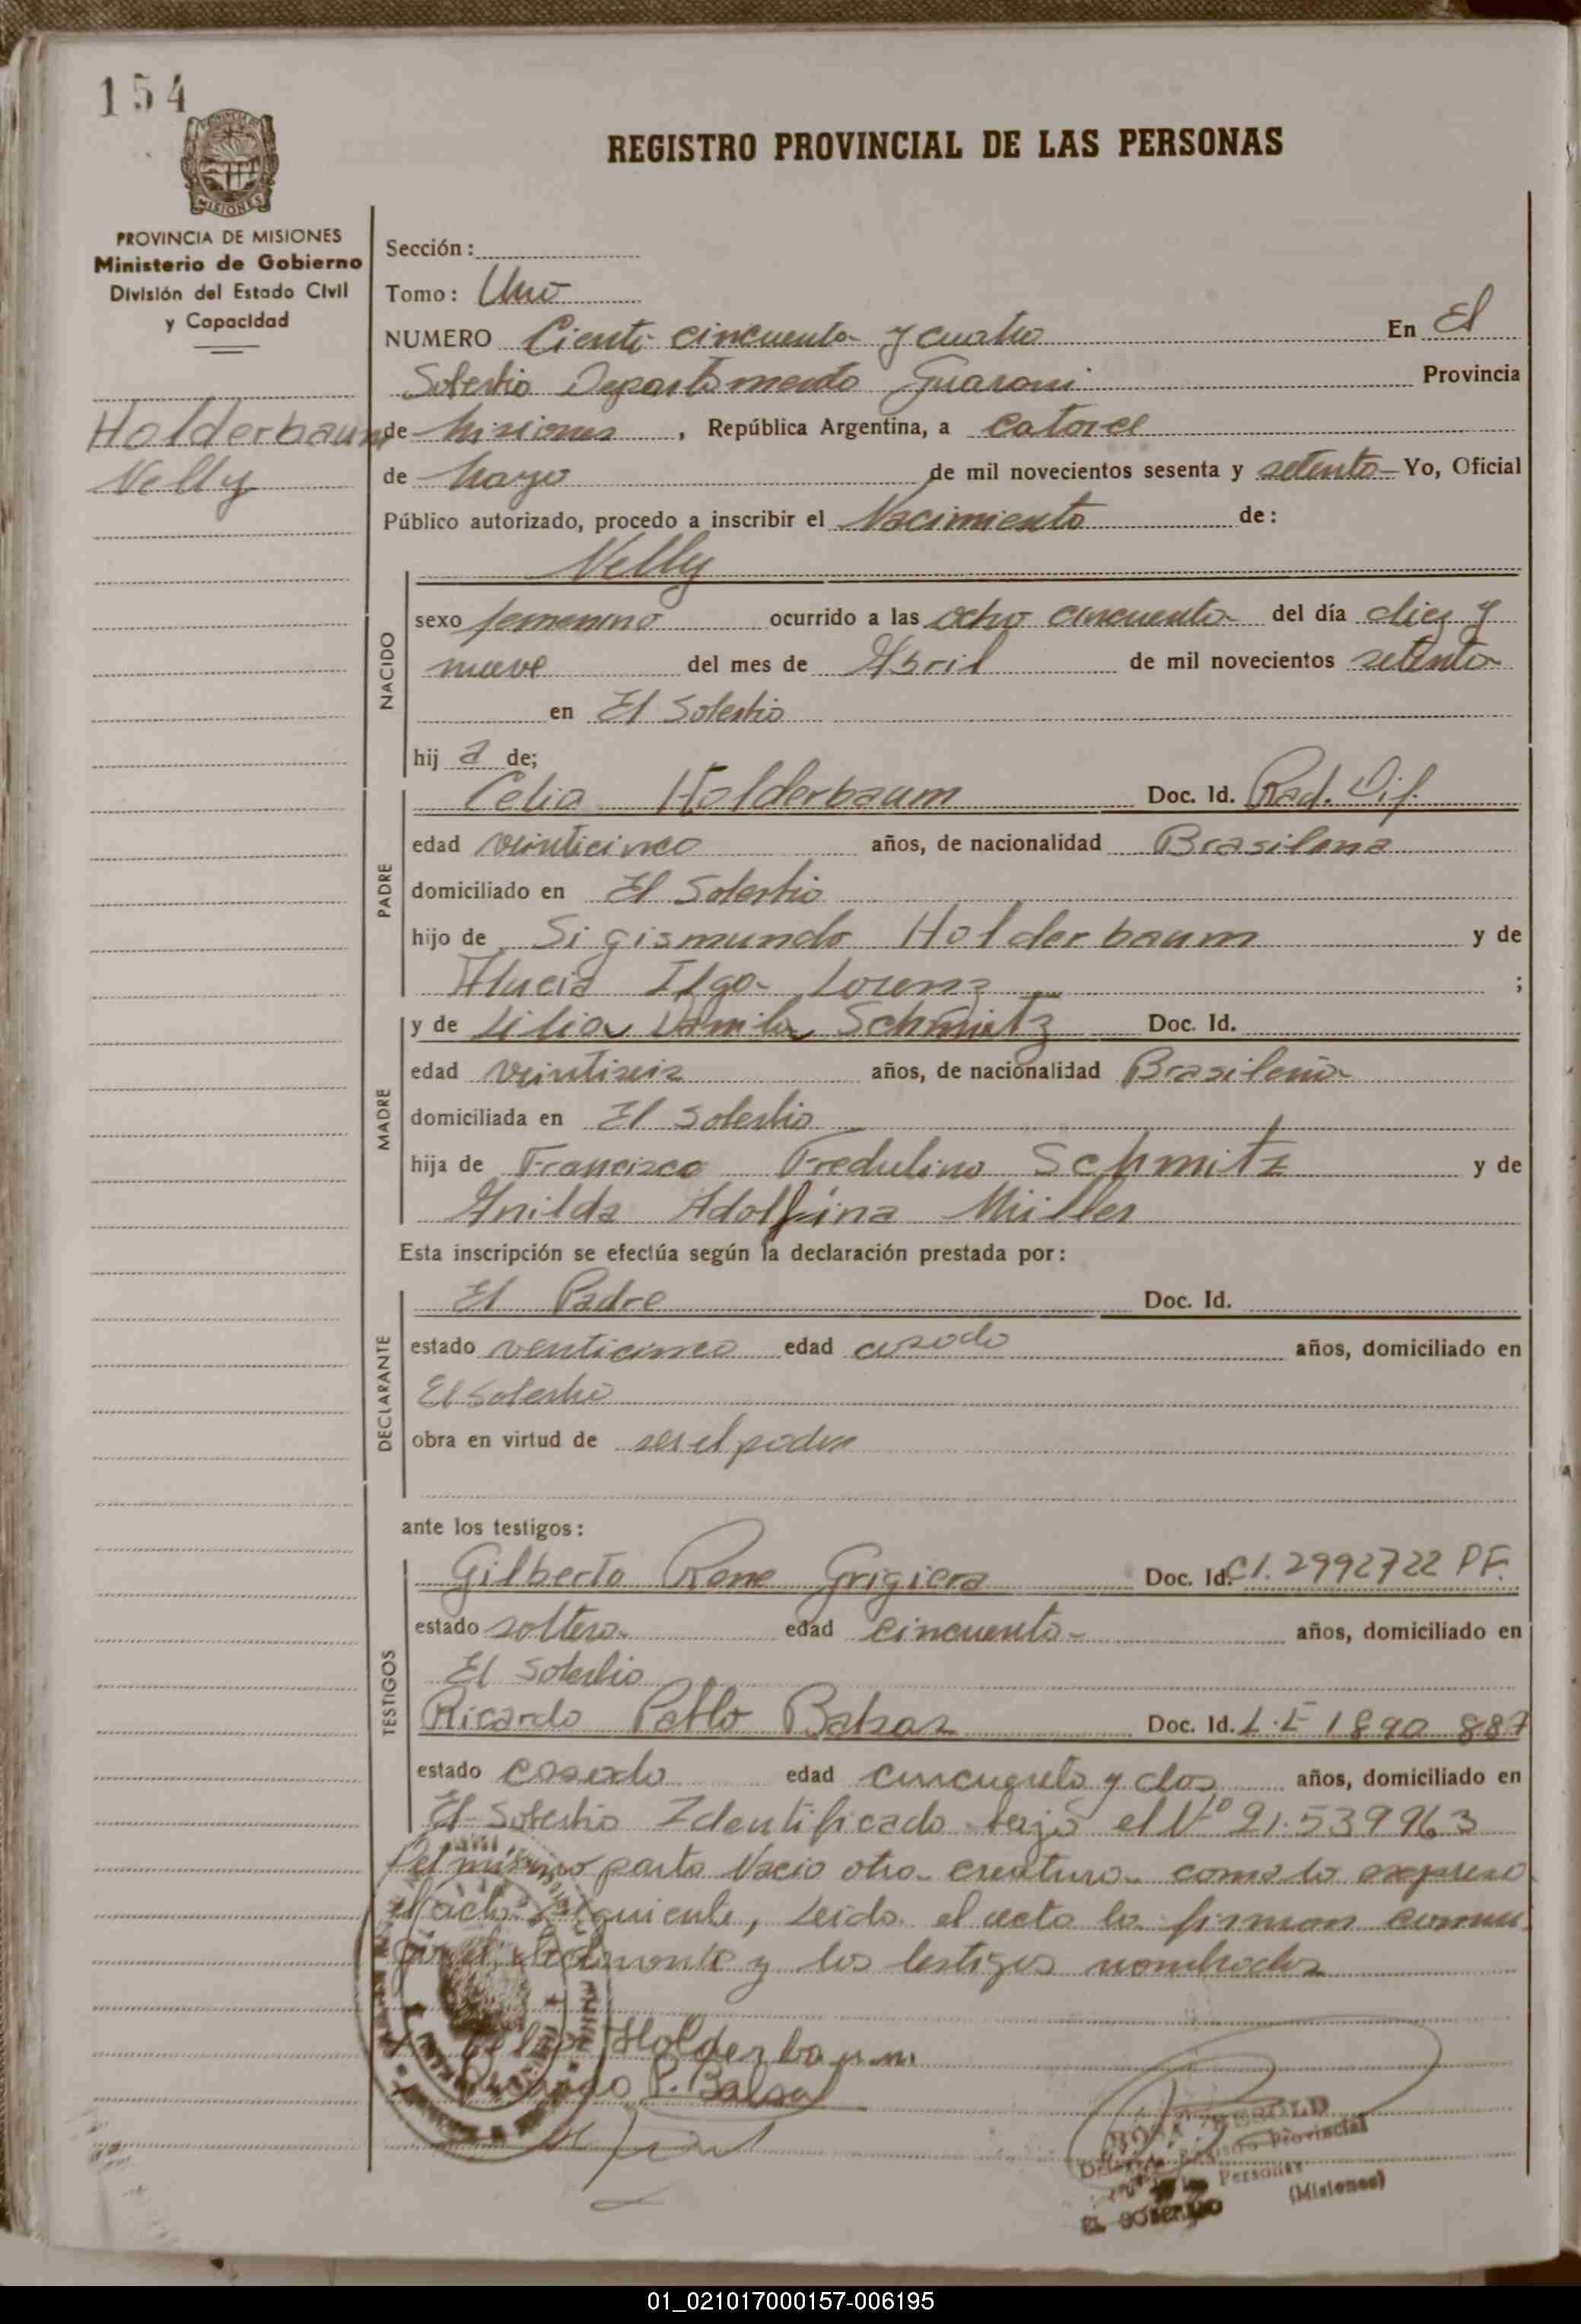 154
REGISTRO PROVINCIAL DE LAS PERSONAS
MISIONES
PROVINCIA DE MISIONES
Ministerio de Gobierno
División del Estado Civil
y Capacidad
Holderbaum
Nelly
Sección:
Tomo: Uno
NUMERO Ciento cincuenta y cuatro En El
Soberbio Departamento Guarani Provincia
de Misiones, República Argentina, a catorce
de Mayo de mil novecientos sesenta y setenta Yo, Oficial
Público autorizado, procedo a inscribir el Nacimiento de:
Nelly
NACIDO
sexo femenino ocurrido a las ocho cincuenta del día diez y
nueve del mes de Abril de mil novecientos setenta
en El Soberbio
hij a de;
PADRE
Celio Holderbaum Doc. Id. Rad. Dif.
edad veinticinco años, de nacionalidad Brasilena
domiciliado en El Soberbio
hijo de Sigismundo Holderbaum y de
Ilga Lorenz ;
MADRE
y de Schmitz Doc. Id.
edad veintiseis años, de nacionalidad Brasileña
domiciliada en El Soberbio
hija de Francisco Fredulino Schmitz y de
Adolfina Müller
Esta inscripción se efectúa según la declaración prestada por:
DECLARANTE
El Padre Doc. Id.
estado venticinco edad casado años, domiciliado en
El Soberbio
obra en virtud de ser el padre
ante los testigos:
TESTIGOS
Gilberto Rene Grigiera Doc. Id. C1. 2992722 PF.
estado soltero edad cincuenta años, domiciliado en
El Soberbio
Ricardo Pablo Balsas Doc. Id. L.E 1890 887
estado casado edad cincuenta y dos años, domiciliado en
El Soberbio Identificado bajo el Nº 21.539963
Del mismo parto Nacio otra creatura como lo expresa
el acta siguiente, Leida el acta la firman
declarante y los testigos nombrados
Holderbaum
P. Balsa
BESOLD
Registro Provincial
Personas
(Misiones)
EL SOBERBIO
01_021017000157-006195